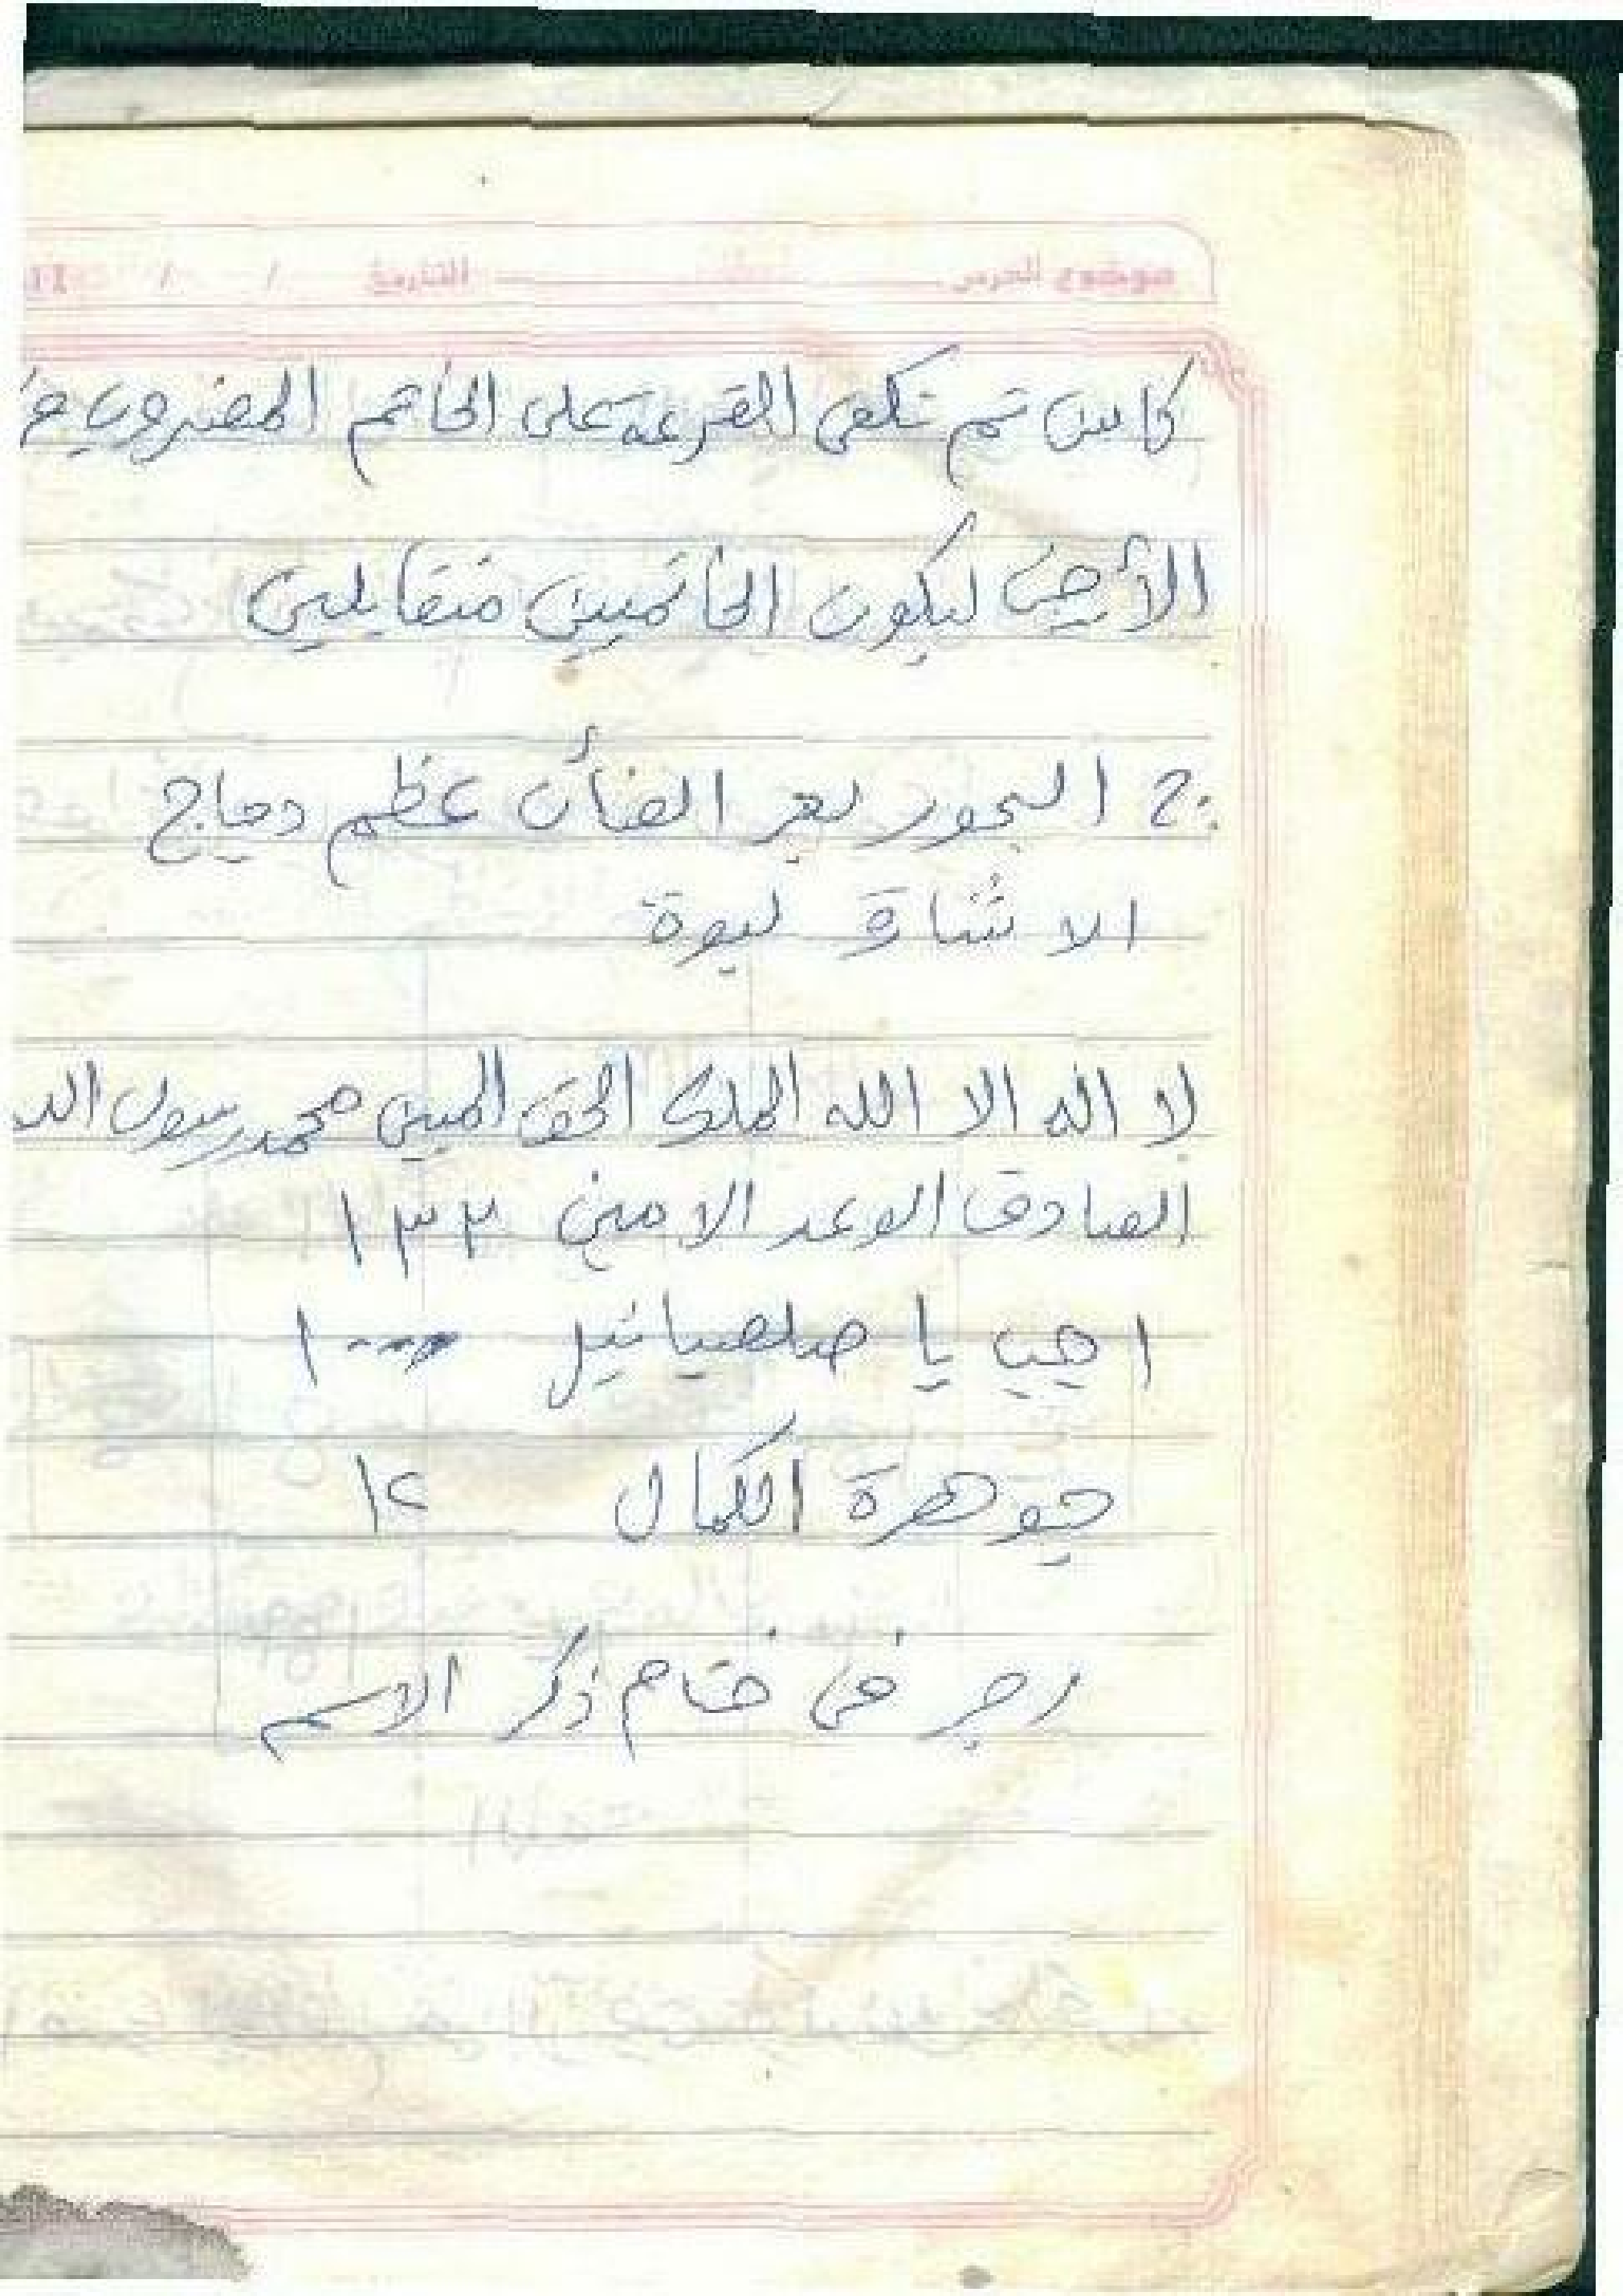 موضوع الدرس ــــــــ التاريخ / /
كاس تم تكفى القرعة على الخاتم المضروب
الأرض ليكون الخاتمين متقابلين
2: البخور بعر الضأن عظم دجاج
لا اله الا الله الملك الحق المبين محمد رسول الله
الصادق الوعد الامين ١٣٣
اجب يا صلصيائيل ١٠٠٠
جوهرة الكمال ١٢
فى ختام ذكر الاسم